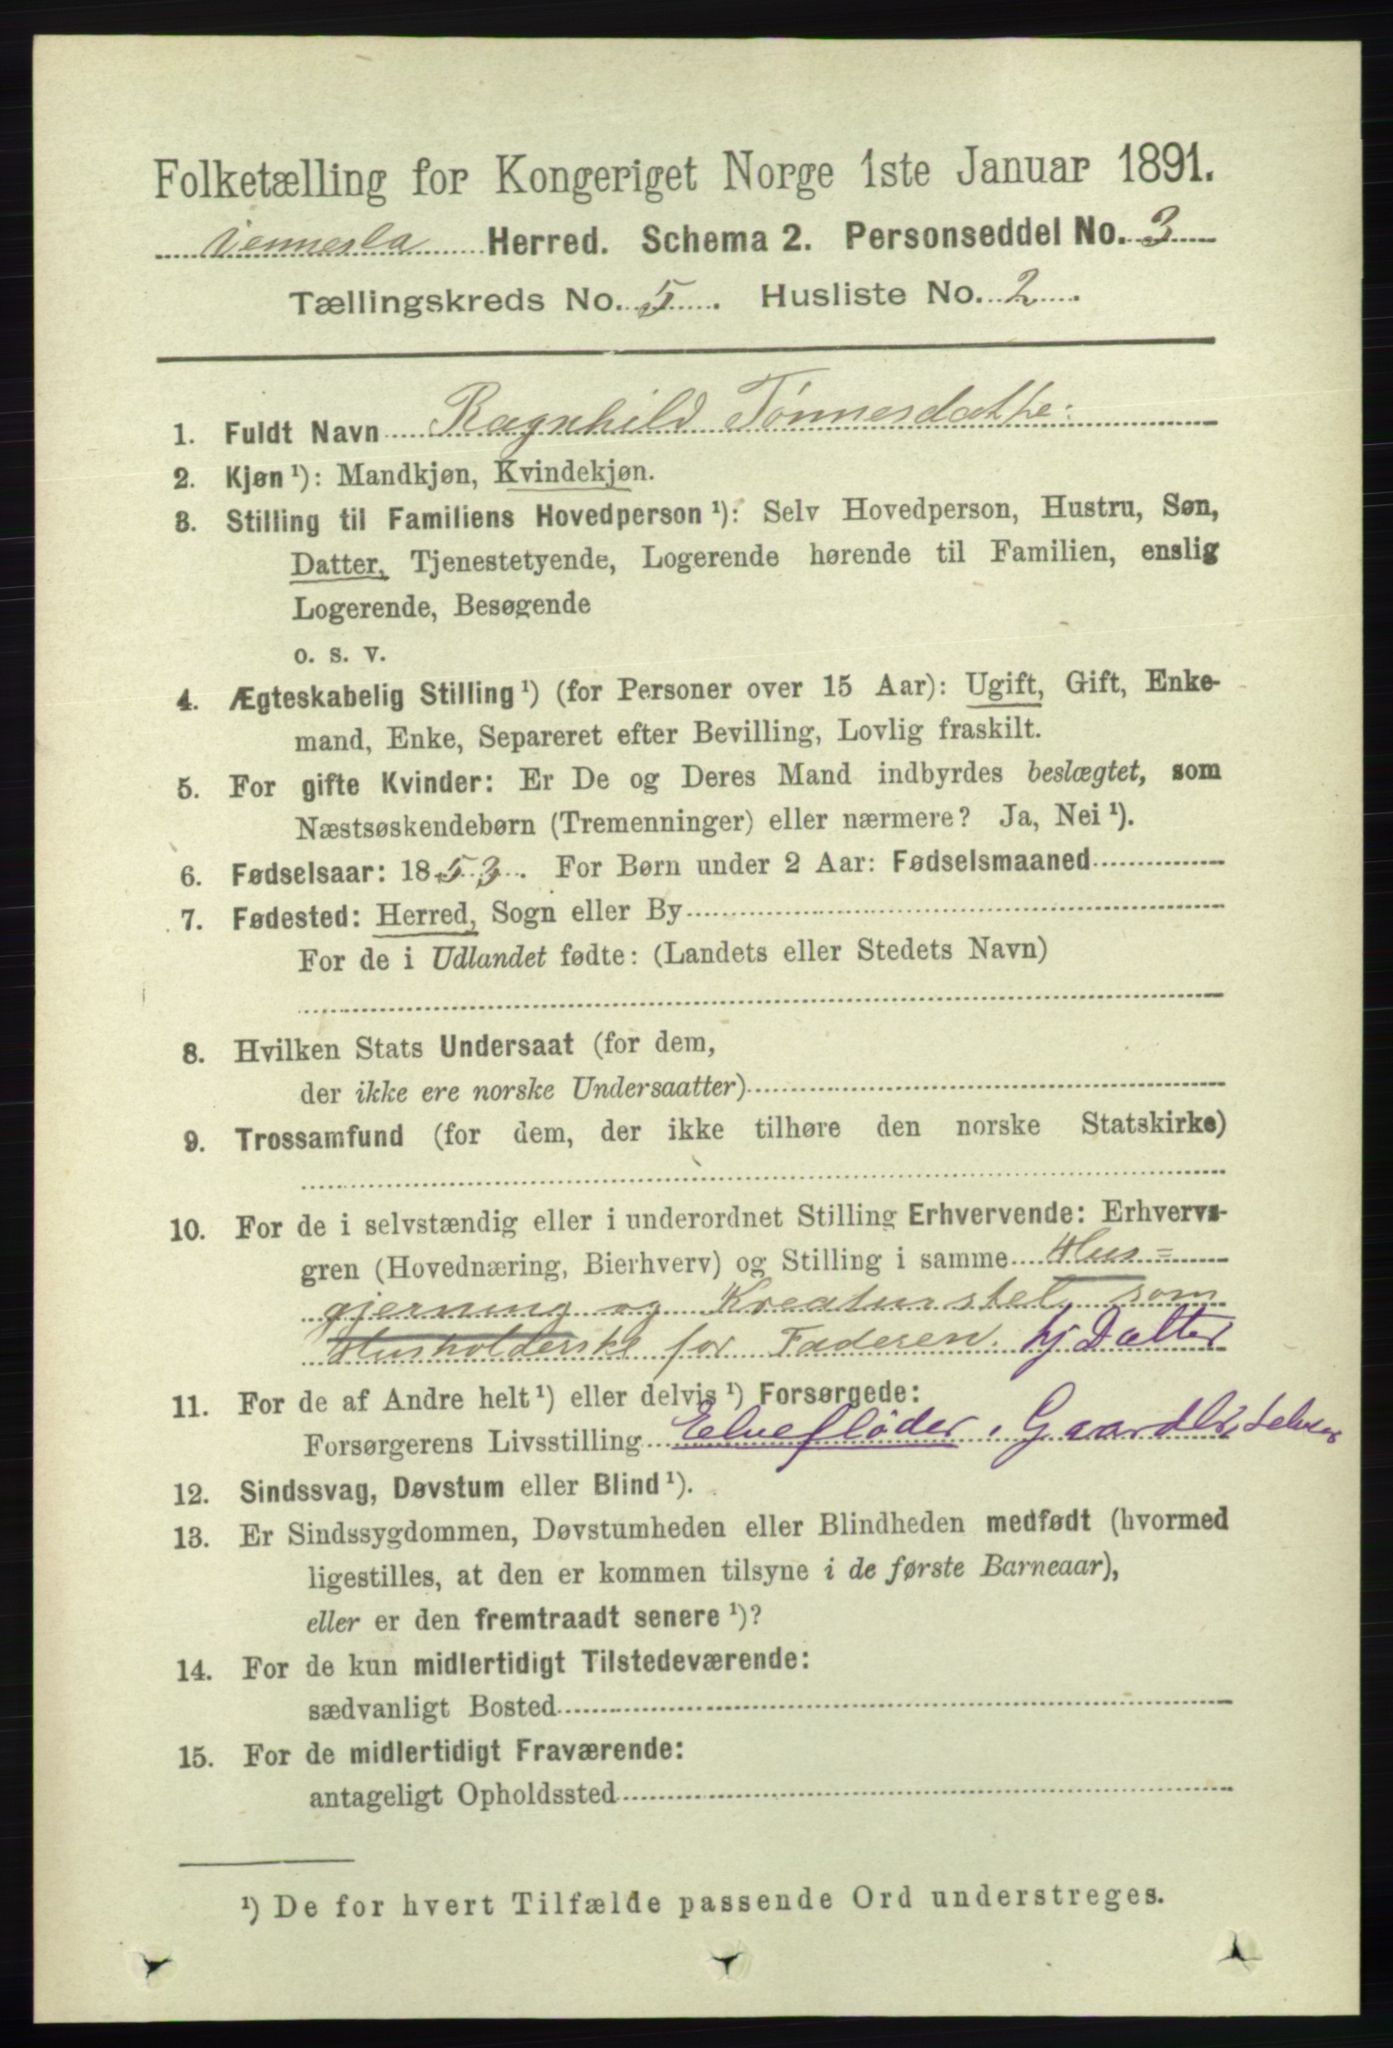 Folketælling for Kongeriget Norge 1ste Januar 1891.
Vennesla Herred. Schema 2. Personseddel No. 3
Tællingskreds No. 5. Husliste No. 2.
1. Fuldt Navn Ragnhild Tønnesdatte:
2. Kjøn ¹): Mandkjøn, Kvindekjøn.
3. Stilling til Familiens Hovedperson ¹): Selv Hovedperson, Hustru, Søn,
Datter, Tjenestetyende, Logerende hørende til Familien, enslig
Logerende, Besøgende
o. s. v.
4. Ægteskabelig Stilling ¹) (for Personer over 15 Aar): Ugift, Gift, Enke-
mand, Enke, Separeret efter Bevilling, Lovlig fraskilt.
5. For gifte Kvinder: Er De og Deres Mand indbyrdes beslægtet, som
Næstsøskendebørn (Tremenninger) eller nærmere? Ja, Nei ¹).
6. Fødselsaar: 1853. For Børn under 2 Aar: Fødselsmaaned
7. Fødested: Herred, Sogn eller By
For de i Udlandet fødte: (Landets eller Stedets Navn)
8. Hvilken Stats Undersaat (for dem,
der ikke ere norske Undersaatter)
9. Trossamfund (for dem, der ikke tilhøre den norske Statskirke)
10. For de i selvstændig eller i underordnet Stilling Erhvervende: Erhvervs-
gren (Hovednæring, Bierhverv) og Stilling i samme Hus=
gjerning og Kreaturstel som
Husholderske for Faderen. hj Datter
11. For de af Andre helt ¹) eller delvis ¹) Forsørgede:
Forsørgerens Livsstilling Elvefløder, Gaardbr,
12. Sindssvag, Døvstum eller Blind ¹).
13. Er Sindssygdommen, Døvstumheden eller Blindheden medfødt (hvormed
ligestilles, at den er kommen tilsyne i de første Barneaar),
eller er den fremtraadt senere ¹)?
14. For de kun midlertidigt Tilstedeværende:
sædvanligt Bosted
15. For de midlertidigt Fraværende:
antageligt Opholdssted
¹) De for hvert Tilfælde passende Ord understreges.